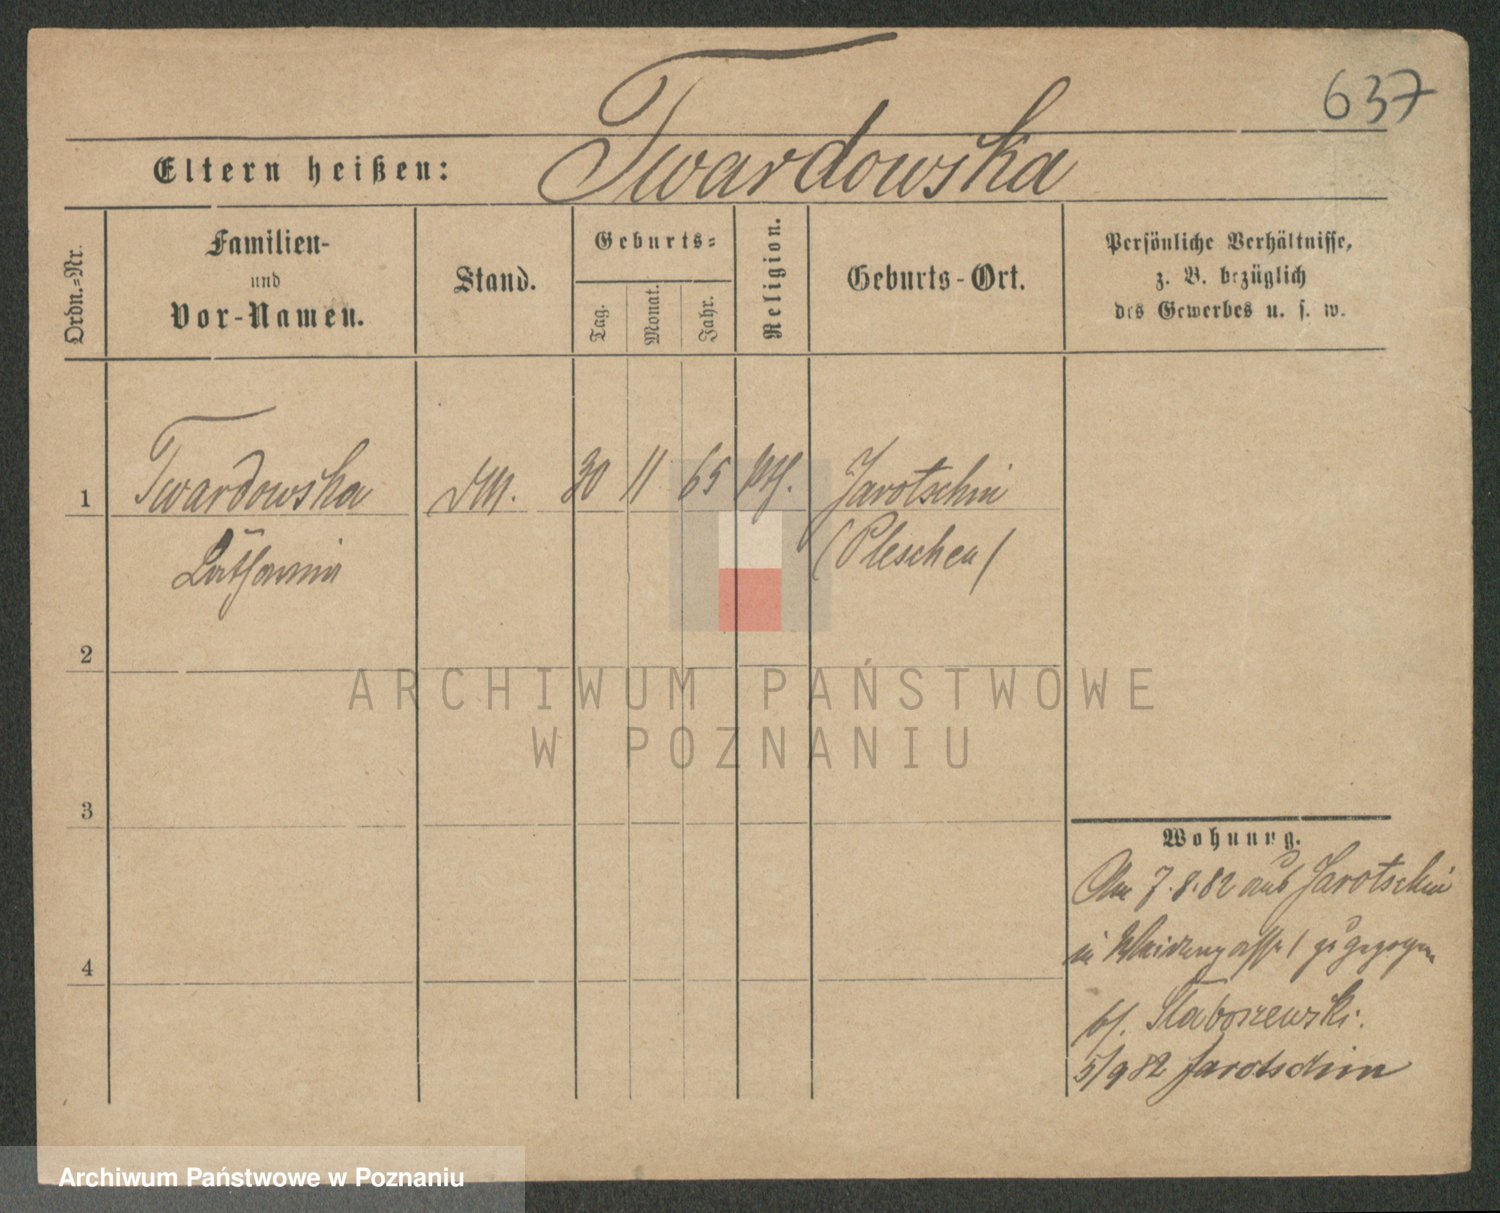 637
Twardowska
Eltern heißen:
Ordn.-Nr.
Familien-
und
Vor-Namen.
Stand.
Geburts-
Tag.
Monat.
Jahr.
Religion.
Geburts-Ort.
Persönliche Verhältnisse,
z. B. bezüglich
des Gewerbes u. s. w.
1 Twardowska 30 11 65 kth. Jarotschin
(Pleschen)
2
ARCHIWUM PAŃSTWOWE
W POZNANIU
3
Wohnung.
Am 7.8.82 aus Jarotschin
in zugezogen
bf. Staboszewski.
4
5/9 82 Jarotschin
Archiwum Państwowe w Poznaniu